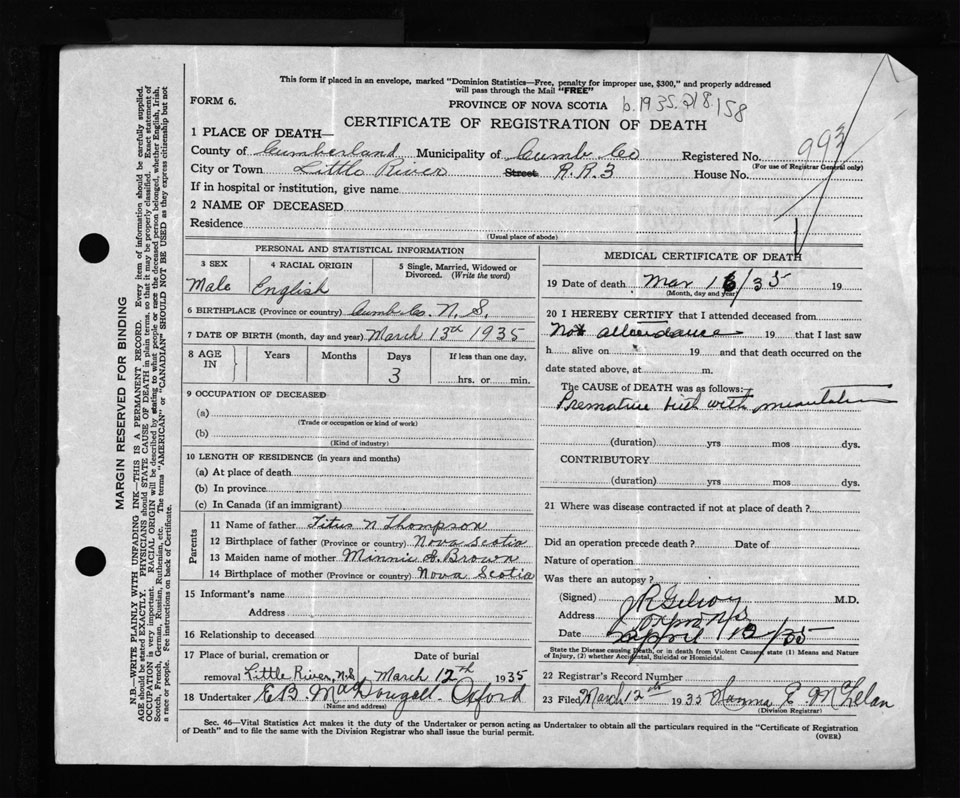 This form if placed in an envelope, marked "Dominion Statistics—Free, penalty for improper use, $300," and properly addressed
will pass through the Mail "FREE"
FORM 6.
PROVINCE OF NOVA SCOTIA
b.1935.218.158
CERTIFICATE OF REGISTRATION OF DEATH
993
1 PLACE OF DEATH—
County of Cumberland Municipality of Cumb Co Registered No.
(For use of Registrar General only)
City or Town Little River Street R.R.3 House No.
If in hospital or institution, give name
2 NAME OF DECEASED
Residence
(Usual place of abode)
PERSONAL AND STATISTICAL INFORMATION
3 SEX 4 RACIAL ORIGIN 5 Single, Married, Widowed or Divorced. (Write the word)
Male English
6 BIRTHPLACE (Province or country) Cumb Co. N. S.
7 DATE OF BIRTH (month, day and year) March 13th 1935
8 AGE IN Years Months Days If less than one day,
3 hrs. or min.
9 OCCUPATION OF DECEASED
(a)
(Trade or occupation or kind of work)
(b)
(Kind of industry)
10 LENGTH OF RESIDENCE (in years and months)
(a) At place of death
(b) In province
(c) In Canada (if an immigrant)
Parents
11 Name of father Titus N Thompson
12 Birthplace of father (Province or country) Nova Scotia
13 Maiden name of mother Minnie A. Brown
14 Birthplace of mother (Province or country) Nova Scotia
15 Informant's name
Address
16 Relationship to deceased
17 Place of burial, cremation or Date of burial
removal Little River, N.S. March 12th 1935
18 Undertaker E B MacDougall Oxford
(Name and address)
MEDICAL CERTIFICATE OF DEATH
19 Date of death Mar 16/35 19
(Month, day and year)
20 I HEREBY CERTIFY that I attended deceased from
Not attendance 19 that I last saw
h alive on 19 and that death occurred on the
date stated above, at m.
The CAUSE OF DEATH was as follows:
Premature birth with
(duration) yrs mos dys.
CONTRIBUTORY
(duration) yrs mos dys.
21 Where was disease contracted if not at place of death?
Did an operation precede death? Date of
Nature of operation
Was there an autopsy?
(Signed) J R Gilroy M.D.
Address Oxford NS
Date April 12/35
State the Disease causing Death, or in death from Violent Causes, state (1) Means and Nature of Injury, (2) whether Accidental, Suicidal or Homicidal.
22 Registrar's Record Number
23 Filed March 12th 1935 E. McLelan
(Division Registrar)
Sec. 46—Vital Statistics Act makes it the duty of the Undertaker or person acting as Undertaker to obtain all the particulars required in the "Certificate of Registration
of Death" and to file the same with the Division Registrar who shall issue the burial permit.
(OVER)
MARGIN RESERVED FOR BINDING
N.B.—WRITE PLAINLY WITH UNFADING INK—THIS IS A PERMANENT RECORD. Every item of information should be carefully supplied.
AGE should be stated EXACTLY. PHYSICIANS should STATE CAUSE OF DEATH in plain terms, so that it may be properly classified. Exact statement of
OCCUPATION is very important. RACIAL ORIGIN will be described by stating to what people or race the deceased person belonged, whether English, Irish,
Scotch, French, German, Russian, Ruthenian, etc. The terms "AMERICAN" or "CANADIAN" SHOULD NOT BE USED as they express citizenship but not
a race or people. See instructions on back of Certificate.